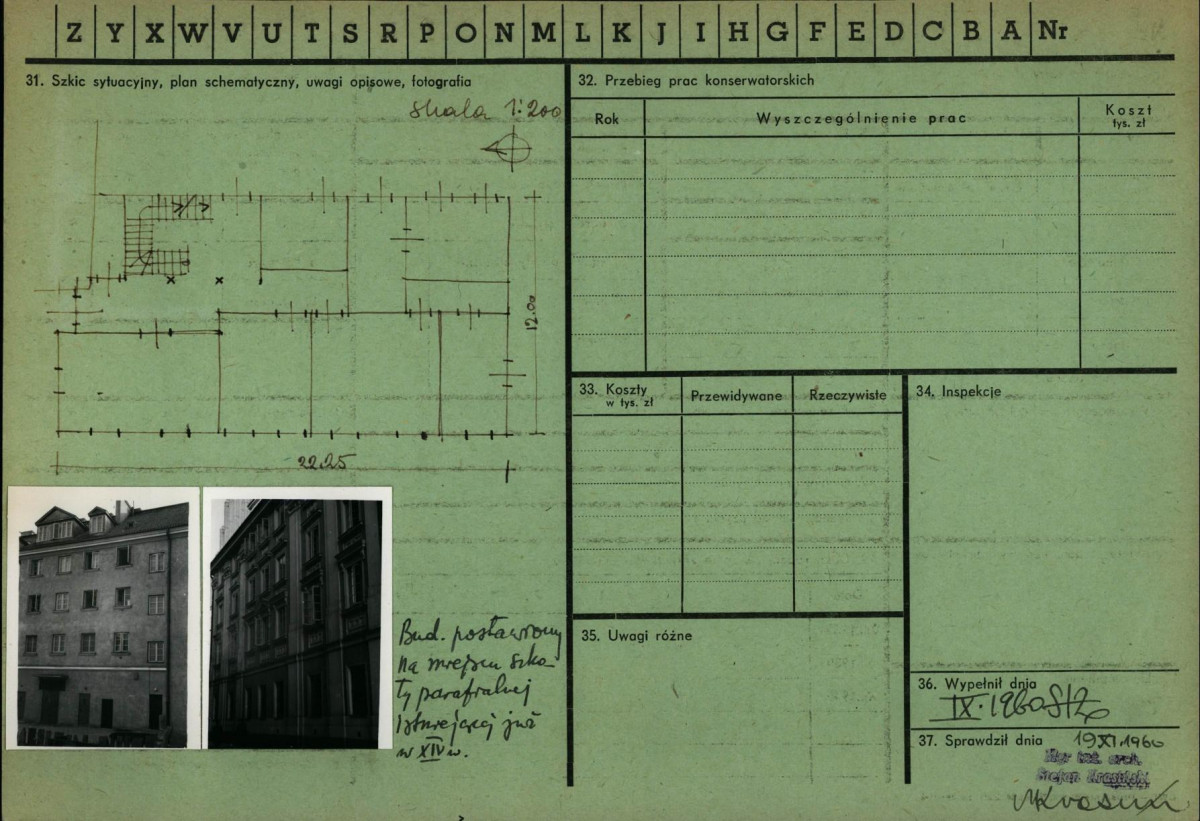 Z Y X W V U T S R P O N M L K J I H G F E D C B A Nr
31. Szkic sytuacyjny, plan schematyczny, uwagi opisowe, fotografia
Skala 1:200
12.00
22.25
Bud. postawiony
na miejscu szko-
ły parafialnej
istniejącej już
w XIV w.
32. Przebieg prac konserwatorskich
Rok
Wyszczególnienie prac
Koszt
tys. zł
33. Koszty
w tys. zł
Przewidywane
Rzeczywiste
34. Inspekcje
35. Uwagi różne
36. Wypełnił dnia
IX.1960
37. Sprawdził dnia 19 XI.1960
Mgr inż. arch.
Stefan Krasiński